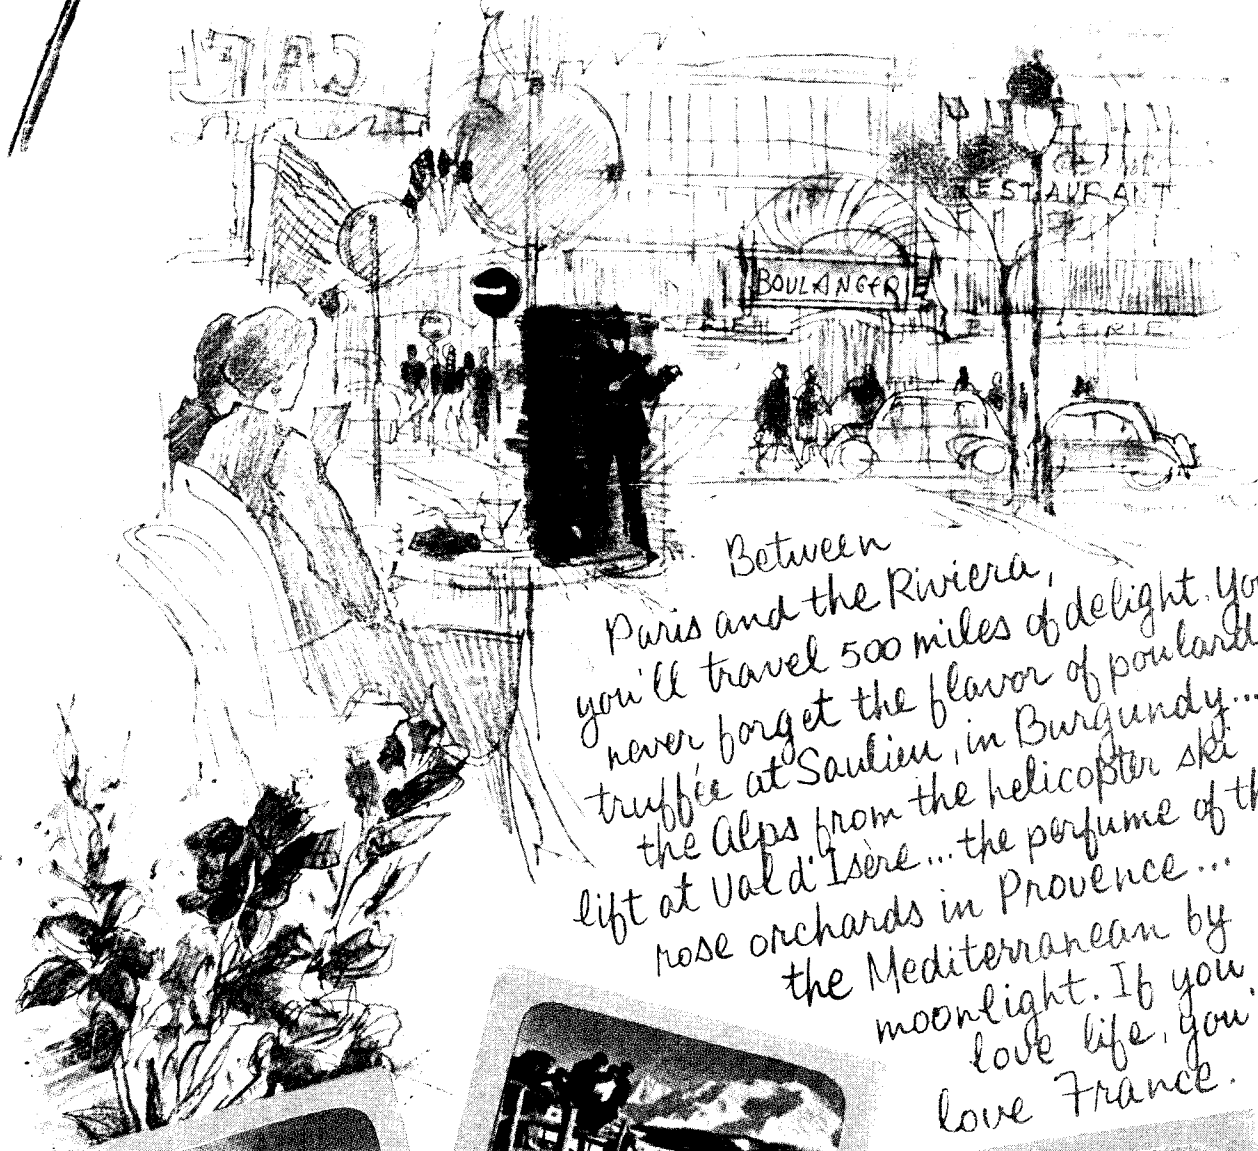 CAFE
RESTAURANT
BOULANGERIE
ERIE
Between
Paris and the Riviera,
you'll travel 500 miles of delight. You
never forget the flavor of poulard
truffée at Saulieu, in Burgundy...
the Alps from the helicopter ski
lift at Val d'Isère... the perfume of th
rose orchards in Provence...
the Mediterranean by
moonlight. If you
love life, you'
love France.